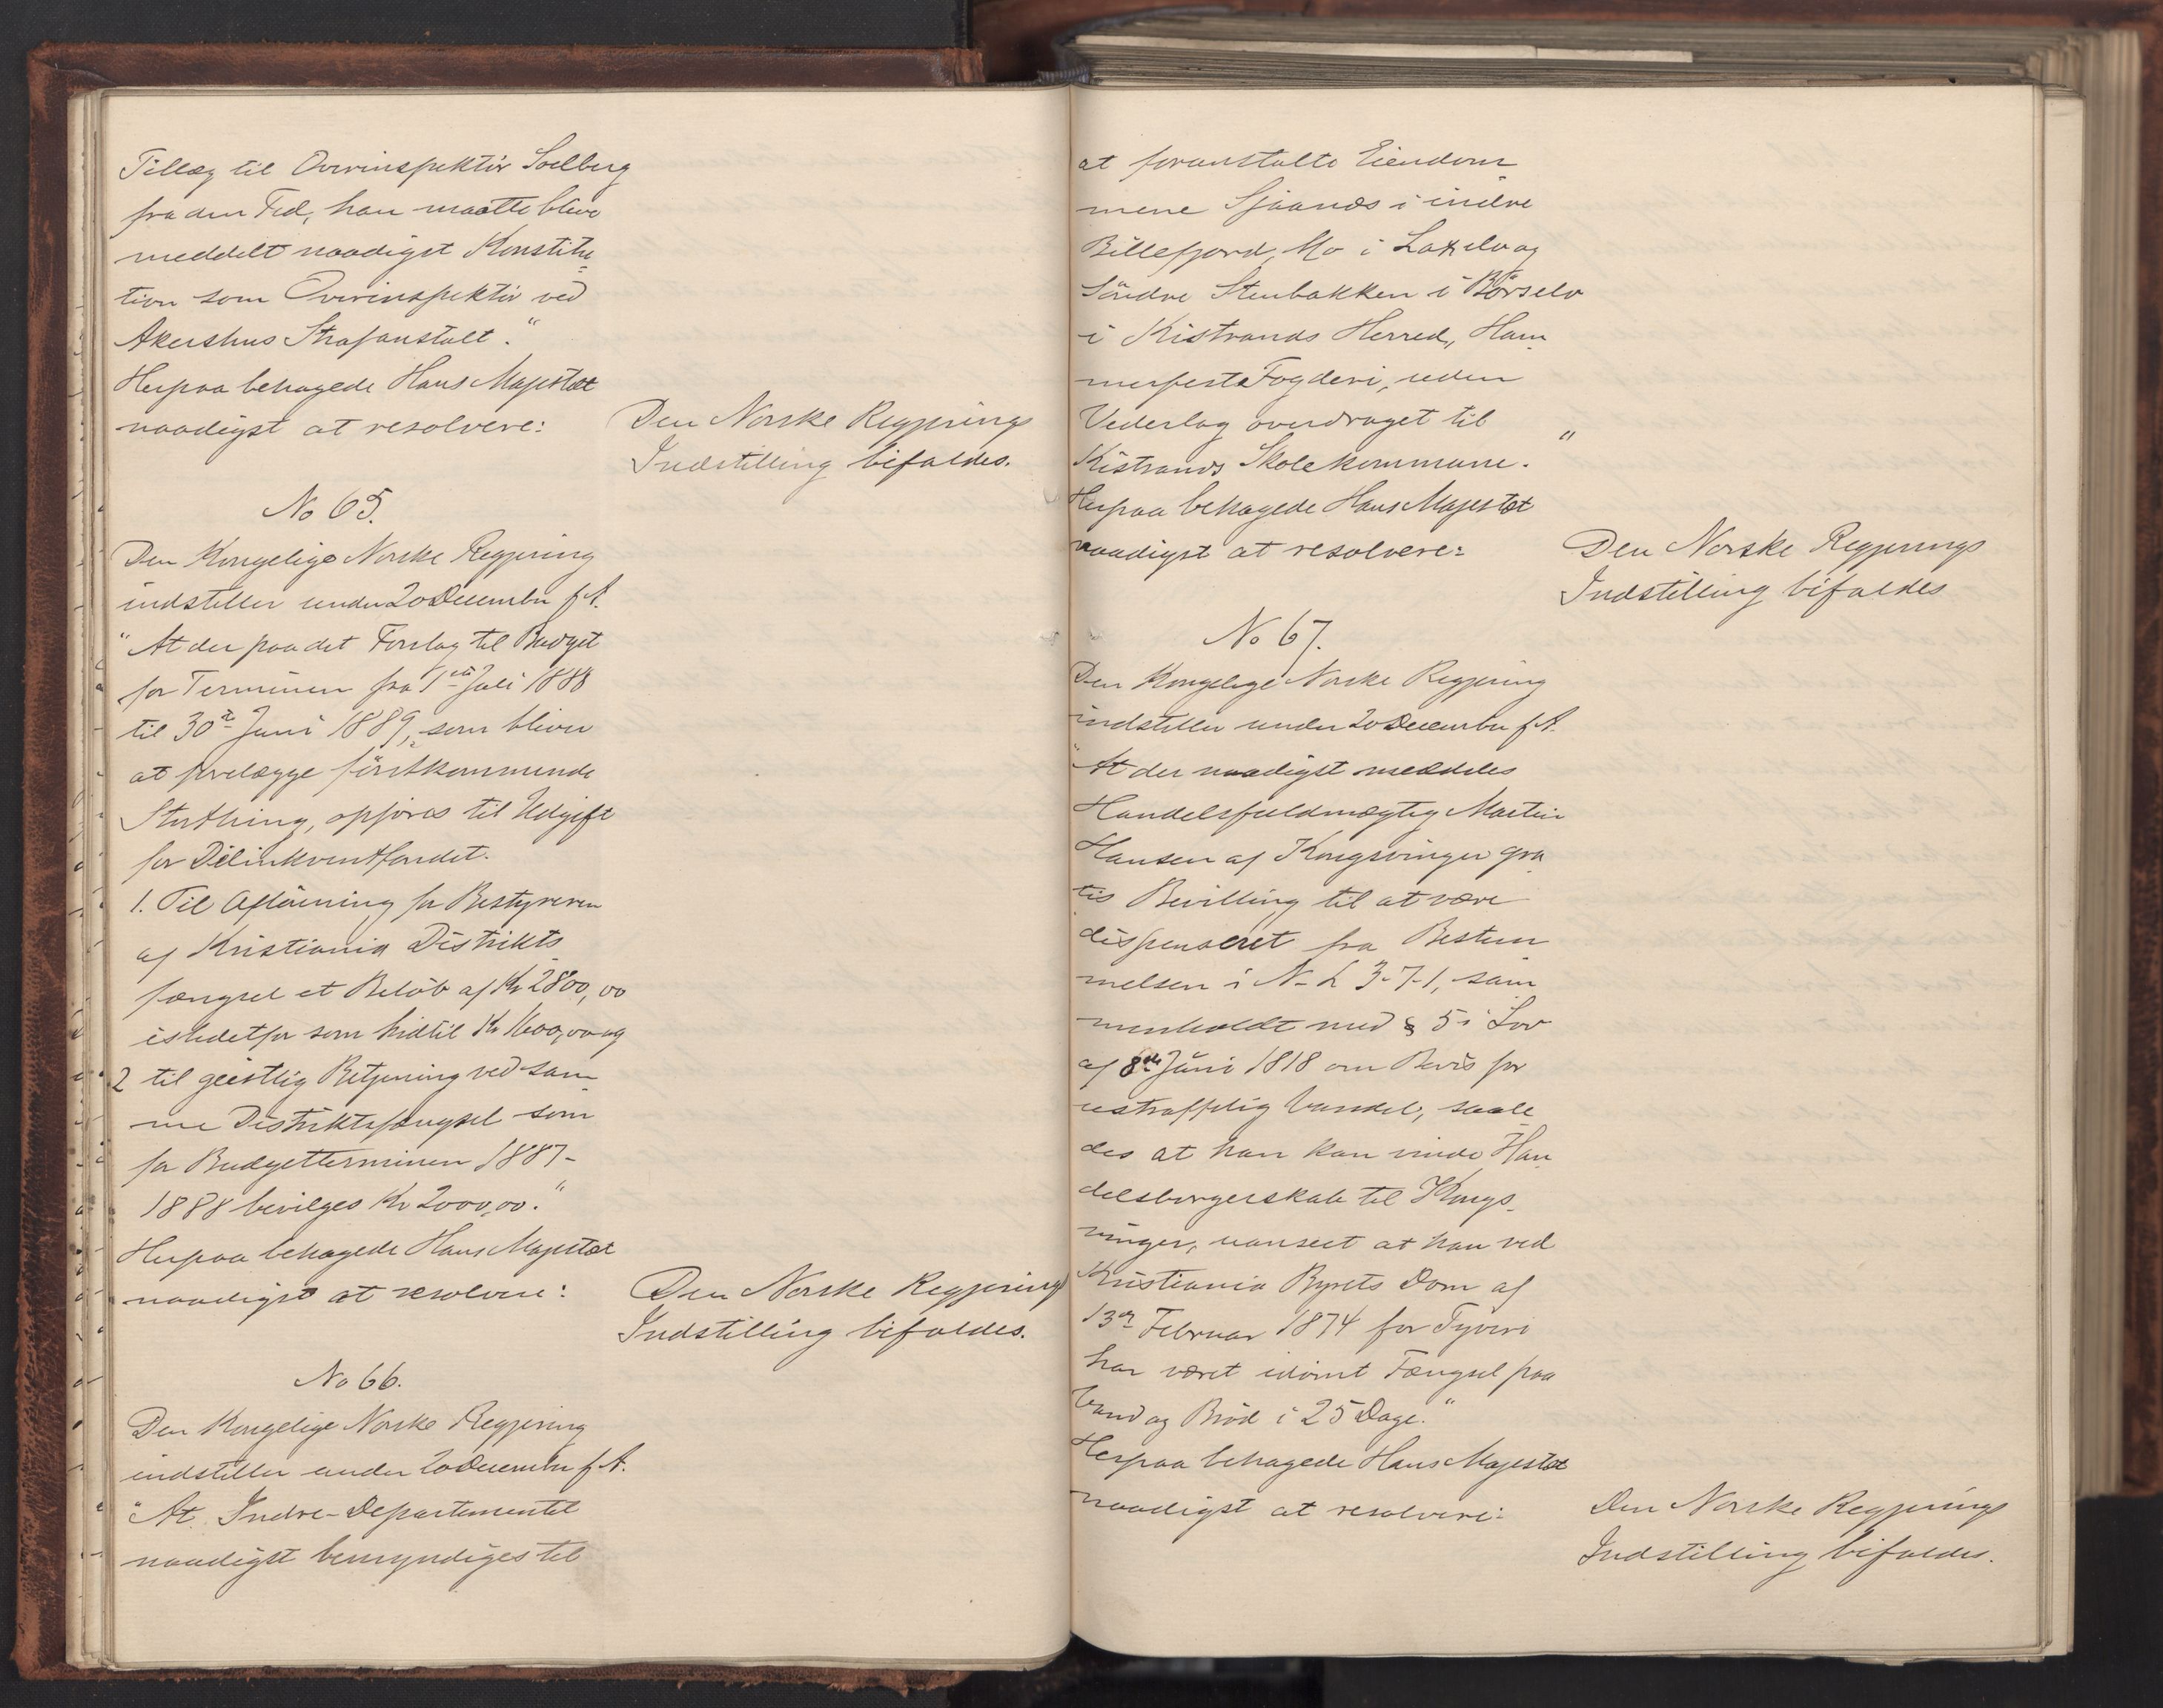 Tillæg til Overinspektör Soelberg
fra den Tid, han maatte blive
meddelt naadigst Konstitu-
tion som Overinspektör ved
Akershus Strafanstalt."
Herpaa behagede Hans Majestæt
naadigst at resolvere:
Den Norske Regjerings
Indstilling bifaldes.
No 65.
Den Kongelige Norske Regjering
indstiller under 20 December f. A.
"At der paa det Forslag til Budget
for Terminen fra 1ste Juli 1888
til 30te Juni 1889, som bliver
at forelægge förstkommende
Storthing, opföres til Udgift
for Delinkventfondet.
1. Til Aflönning for Bestyreren
af Kristiania Distrikts-
fængsel et Belöb af Kr 2800,00
istedetfor som hidtil Kr 1600,00 og
2 til geistlig Betjening ved sam-
me Distriktsfængsel som
for Budgetterminen 1887-
1888 bevilges Kr 2000,00."
Herpaa behagede Hans Majestæt
naadigst at resolvere:
Den Norske Regjerings
Indstilling bifaldes.
No 66.
Den Kongelige Norske Regjering
indstiller under 20 December f. A.
"At Indre-Departementet
naadigst bemyndiges til
at foranstalte Eiendom-
mene Sjaanæs i indre
Billefjord, Mo i Laxelv og
Söndre Stenbakken i Börselv
i Kistrands Herred, Ham-
merfests Fogderi, uden
Vederlag overdraget til
Kistrands Skolekommune."
Herpaa behagede Hans Majestæt
naadigst at resolvere:
Den Norske Regjerings
Indstilling bifaldes
No 67.
Den Kongelige Norske Regjering
indstiller under 20 December f. A.
"At der naadigst meddeles
Handelsfuldmægtig Martin
Hansen af Kongsvinger gra-
tis Bevilling til at være
dispenseret fra Bestem-
melsen i N. L 3-7-1, sam-
menholdt med § 5 i Lov
af 8de Juni 1818 om Bevis for
ustraffelig Vandel, saale-
des at han kan vinde Han-
delsborgerskab til Kongs-
vinger, uanseet at han ved
Kristiania Byrets Dom af
13de Februar 1874 for Tyveri
har været idömt Fængsel paa
Vand og Bröd i 25 Dage."
Herpaa behagede Hans Majestæt
naadigst at resolvere:
Den Norske Regjerings
Indstilling bifaldes.